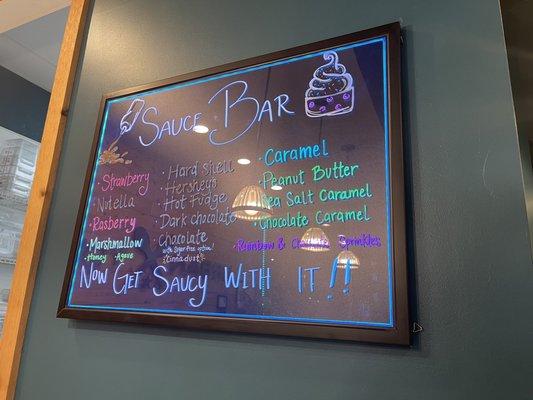 Sauce Bar
· Strawberry
· Nutella
· Rasberry
· Marshmallow
· Honey · Agave
· Hard shell
· Hershey's
· Hot Fudge
· Dark chocolate
· Chocolate
with sugar free options!
· Cinnadust ·
· Caramel
· Peanut Butter
· Sea Salt Caramel
· Chocolate Caramel
· Rainbow & Chocolate Sprinkles
Now Get Saucy With It!!